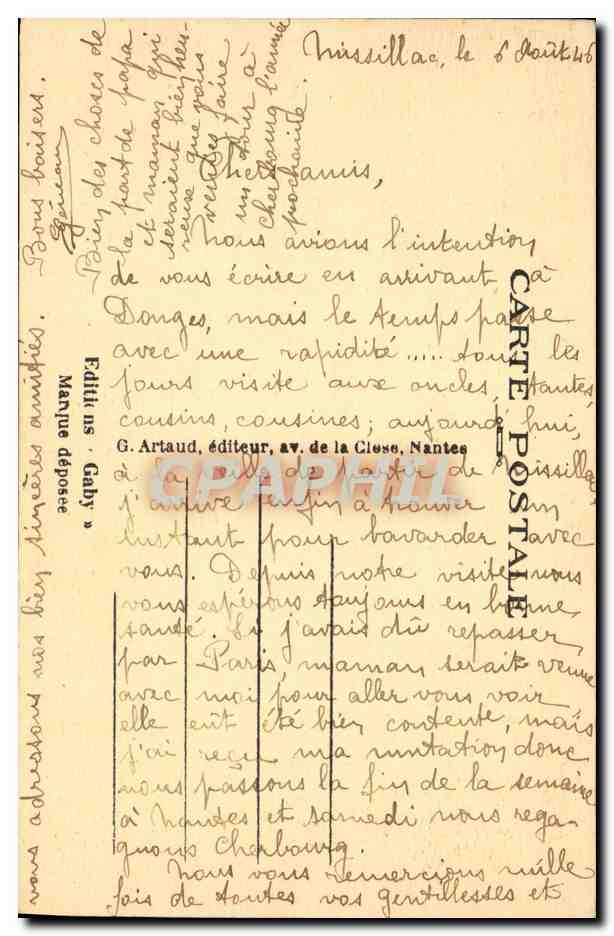 Missillac, le 6 Août 46
Chers amis,
Nous avions l'intention
de vous écrire en arrivant à
Donges, mais le temps passe
avec une rapidité ..... tous les
jours visite aux oncles, tantes,
cousins, cousines ; aujourd'hui,
à la veille de partir de Missillac
j'arrive enfin à trouver un
instant pour bavarder avec
vous. Depuis notre visite nous
vous espérons toujours en bonne
santé. Si j'avais dû repasser
par Paris, maman serait venue
avec moi pour aller vous voir,
elle eût été bien contente, mais
j'ai reçu ma mutation donc
nous passons la fin de la semaine
à Nantes et samedi nous rega-
gnons Cherbourg.
Nous vous remercions mille
fois de toutes vos gentillesses et
vous adressons nos bien sincères amitiés. Bons baisers.
Bien des choses de
la part de papa
et maman qui
seraient bien heu-
reux que vous
veniez faire
un tour à
Cherbourg l'année
prochaine.
CARTE POSTALE
G. Artaud, éditeur, av. de la Close, Nantes
Editions "Gaby"
Marque déposée
CPAPHIL